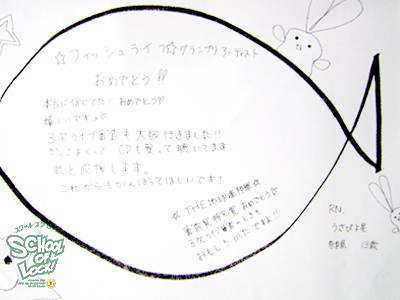 ☆フィッシュライフ☆グランプリアーティスト
おめでとう!!
本当に信じてた!! おめでとう♡
嬉しいですよ♪
3次ライブ審査も大阪行きました!!
かっこよくて CDも買って聴いてます
ずっと応援します。
これからもがんばってほしいです!
☆ THE地球連邦
審査員特別賞 おめでとう☆
3次ライブ審査のときも
おもしろかったですよ!!
RN.
うさぴょ星
奈良県 13歳
スクール オブ
SCHOOL
OF
LOCK!